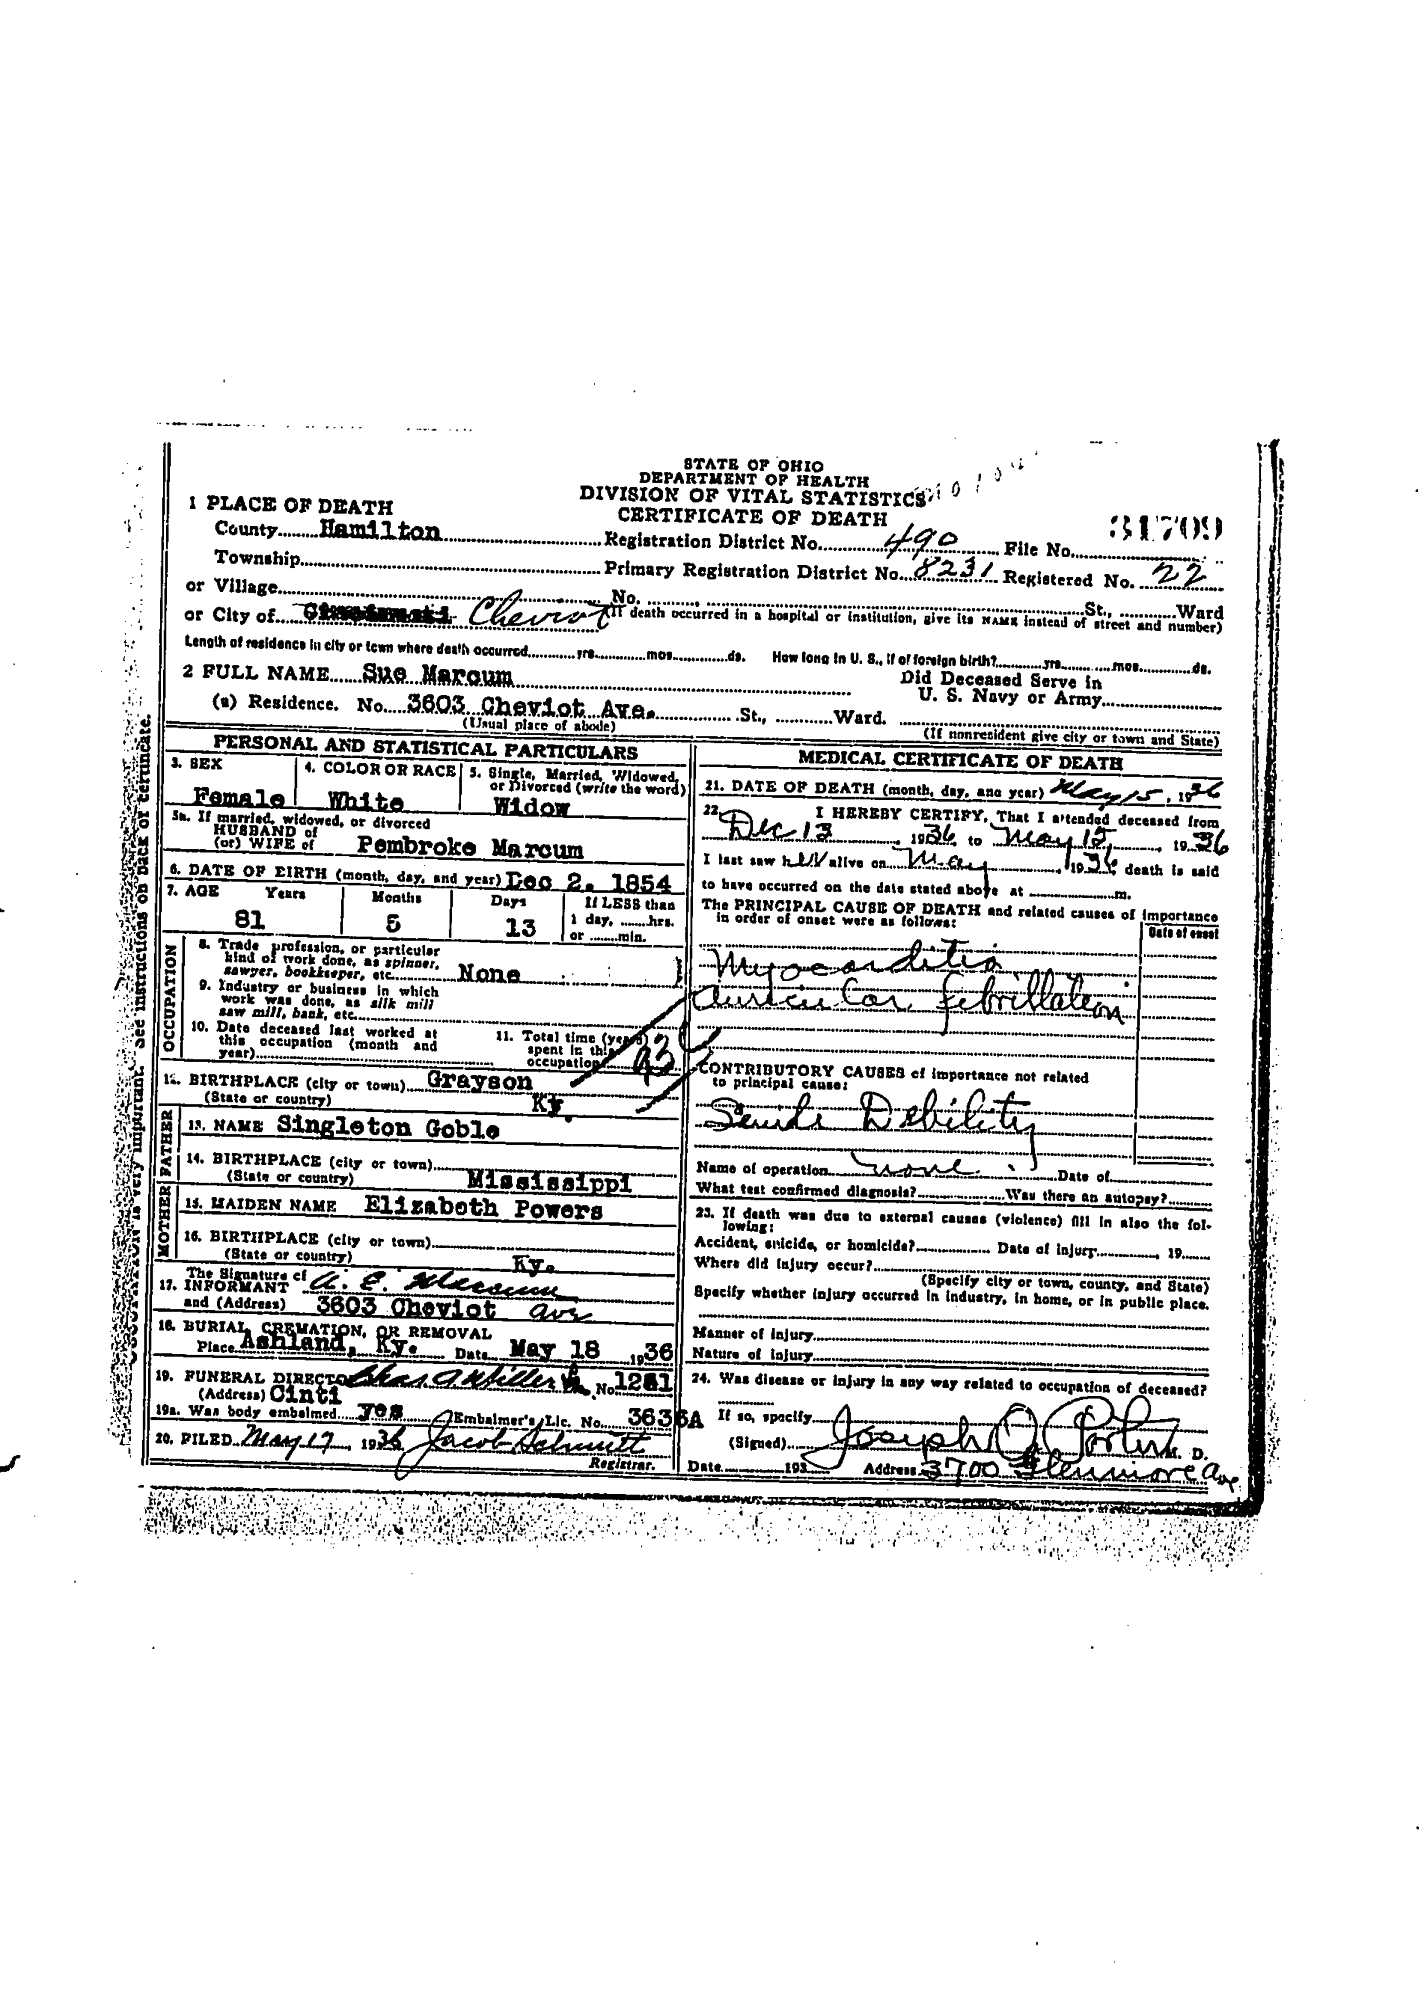 STATE OF OHIO
DEPARTMENT OF HEALTH
DIVISION OF VITAL STATISTICS
CERTIFICATE OF DEATH
31709
1 PLACE OF DEATH
County Hamilton Registration District No. 490 File No.
Township Primary Registration District No. 8231 Registered No. 22
or Village No. St., Ward
or City of Cincinnati Cheviot (If death occurred in a hospital or institution, give its NAME instead of street and number)
Length of residence in city or town where death occurred yrs. mos. ds. How long in U. S., if of foreign birth? yrs. mos. ds.
2 FULL NAME Sue Marcum Did Deceased Serve in
U. S. Navy or Army
(a) Residence. No. 3603 Cheviot Ave. St., Ward.
(Usual place of abode) (If nonresident give city or town and State)
PERSONAL AND STATISTICAL PARTICULARS
3. SEX 4. COLOR OR RACE 5. Single, Married, Widowed, or Divorced (write the word)
Female White Widow
5a. If married, widowed, or divorced
HUSBAND of
(or) WIFE of Pembroke Marcum
6. DATE OF BIRTH (month, day, and year) Dec 2. 1854
7. AGE Years Months Days If LESS than
81 5 13 1 day, hrs.
or min.
OCCUPATION
8. Trade profession, or particular
kind of work done, as spinner,
sawyer, bookkeeper, etc. None
9. Industry or business in which
work was done, as silk mill
saw mill, bank, etc.
10. Date deceased last worked at
this occupation (month and
year)
11. Total time (years)
spent in this
occupation
12. BIRTHPLACE (city or town) Grayson
(State or country) Ky.
FATHER
13. NAME Singleton Goble
14. BIRTHPLACE (city or town)
(State or country) Mississippi
MOTHER
15. MAIDEN NAME Elizabeth Powers
16. BIRTHPLACE (city or town)
(State or country) Ky.
The Signature of
17. INFORMANT A. C. Marcum
and (Address) 3603 Cheviot ave
18. BURIAL, CREMATION, OR REMOVAL
Place Ashland, Ky. Date May 18 1936
19. FUNERAL DIRECTOR Chas. A. Miller No. 1281
(Address) Cinti
19a. Was body embalmed yes Embalmer's Lic. No. 3636A
20. FILED May 17, 1936 Jacob Schmitt
Registrar.
MEDICAL CERTIFICATE OF DEATH
21. DATE OF DEATH (month, day, and year) May 15, 1936
22. I HEREBY CERTIFY, That I attended deceased from
Dec 13, 1936, to May 15, 1936
I last saw her alive on May, 1936, death is said
to have occurred on the date stated above at m.
The PRINCIPAL CAUSE OF DEATH and related causes of importance
in order of onset were as follows:
Date of onset
Myocarditis
Auricular fibrillation
CONTRIBUTORY CAUSES of importance not related
to principal cause:
Senile Debility
Name of operation none Date of
What test confirmed diagnosis? Was there an autopsy?
23. If death was due to external causes (violence) fill in also the following:
Accident, suicide, or homicide? Date of injury, 19
Where did injury occur?
(Specify city or town, county, and State)
Specify whether injury occurred in industry, in home, or in public place.
Manner of injury
Nature of injury
24. Was disease or injury in any way related to occupation of deceased?
If so, specify
(Signed) Joseph M. D.
Date 193 Address 3700 Glenmore Ave
See instructions on back of certificate.
very important.